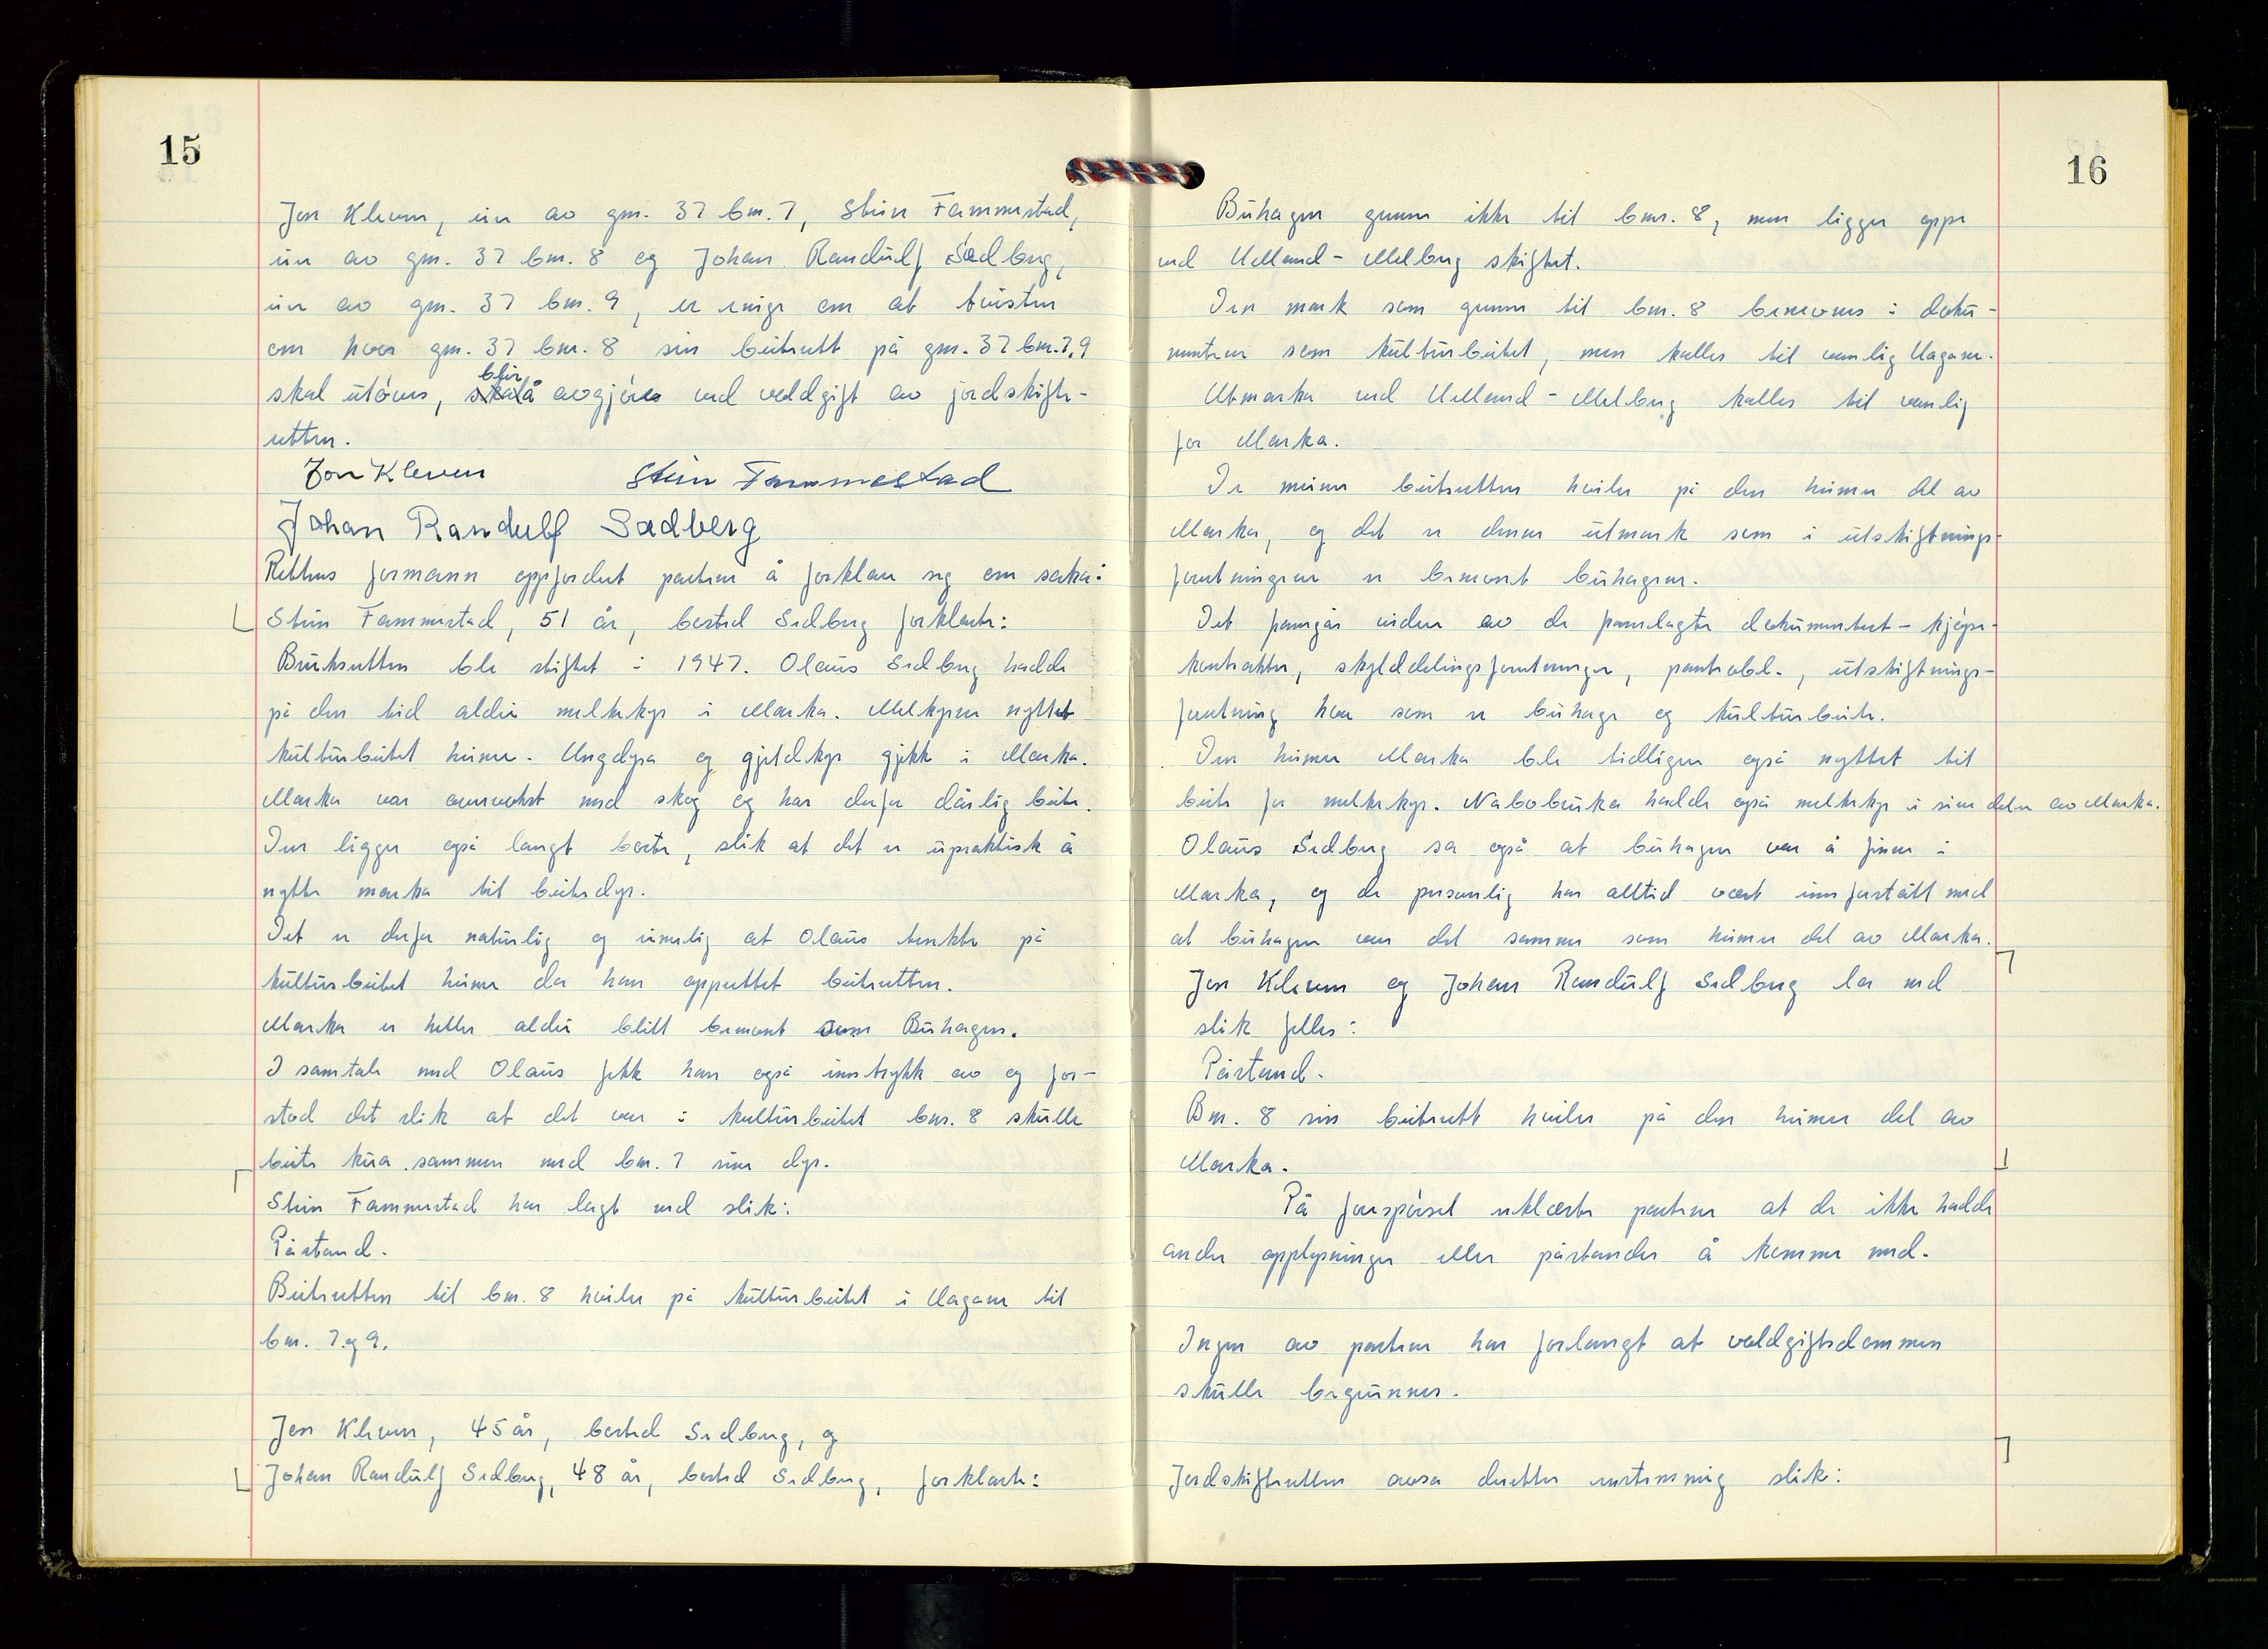 15
Jon Kleven, eier av gnr. 37 bnr. 7, Stein Fammestad,
eier av gnr. 37 bnr. 8 og Johan Randulf Sædberg,
eier av gnr. 37 bnr. 9, er enige om at tvisten
om hvor gnr. 37 bnr. 8 sin beiterett på gnr. 37 bnr. 7,9
skal utøves, blir å avgjøre ved voldgift av jordskifte-
retten.
Jon Kleven Stein Fammestad
Johan Randulf Sædberg
Rettens formann oppfordret partene å forklare seg om saka:
Stein Fammestad, 51 år, bosted Sedberg forklarte:
Bruksretten ble stiftet i 1947. Olaus Sedberg hadde
på den tid aldri melkekyr i Marka. Melkyrne nyttet
kulturbeitet heime. Ungdyra og gjeldkyr gjekk i Marka.
Marka var overvokst med skog og har derfor dårlig beite.
Den ligger også langt borte, slik at det er upraktisk å
nytte marka til beitedyr.
Det er derfor naturlig og rimelig at Olaus tenkte på
kulturbeitet heime da han opprettet beiteretten.
Marka er heller aldri blitt benevnt som Buhagen.
I samtale med Olaus fekk han også inntrykk av og for-
stod det slik at det var i kulturbeitet bnr. 8 skulle
beite kua sammen med bnr. 7 sine dyr.
Stein Fammestad har lagt ned slik:
Påstand.
Beiteretten til bnr. 8 hviler på kulturbeitet i Hagane til
bnr. 7 og 9.
Jon Kleven, 45 år, bosted Sedberg, og
Johan Randulf Sedberg, 48 år, bosted Sedberg, forklarte:
16
Buhagen grenser ikke til bnr. 8, men ligger oppe
ved Helland - Melberg skiftet.
Den mark som grenser til bnr. 8 benevnes i doku-
mentene som kulturbeitet, men kalles til vanlig Hagane.
Utmarka ved Helland - Melberg kalles til vanlig
for Marka.
De mener beiteretten hviler på den heimre del av
Marka, og det er denne utmark som i utskiftnings-
forretningene er benevnt buhagene.
Det framgår videre av de framlagte dokumentert - kjøpe-
kontrakter, skylddelingsforretninger, panteobl., utskiftnings-
forretning hva som er buhage og kulturbeite.
Den heimre Marka ble tidligere også nyttet til
beite for melkekyr. Nabobruka hadde også melkekyr i sine deler av Marka.
Olaus Sedberg sa også at buhagen var å finne i
Marka, og de personlig har alltid vært innforstått med
at buhagen var det samme som heimre del av Marka.
Jon Kleven og Johan Randulf Sedberg la ned
slik felles:
Påstand.
Bnr. 8 sin beiterett hviler på den heimre del av
Marka.
På forespørsel erklærte partene at de ikke hadde
andre opplysninger eller påstander å komme med.
Ingen av partene har forlangt at voldgiftsdommen
skulle begrunnes.
Jordskifteretten avsa deretter enstemmig slik: